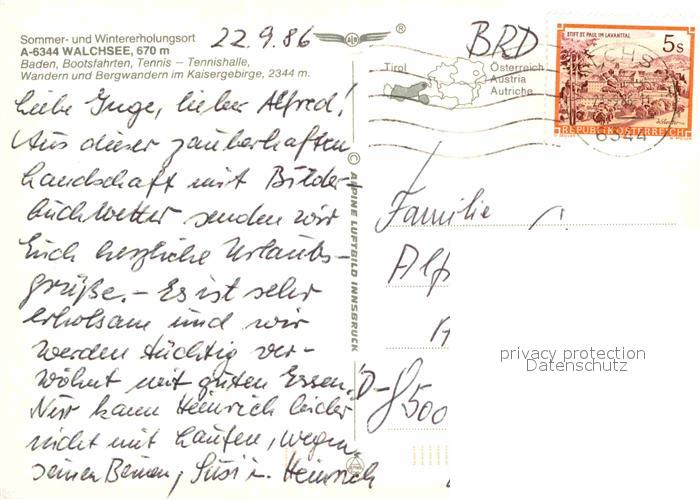 Sommer- und Wintererholungsort
A-6344 WALCHSEE, 670 m
Baden, Bootsfahrten, Tennis – Tennishalle,
Wandern und Bergwandern im Kaisergebirge, 2344 m.
22.9.86
®
BRD
STIFT ST. PAUL IM LAVANTTAL
5 S
REPUBLIK ÖSTERREICH
6344
Tirol
Österreich
Austria
Autriche
Liebe Inge, lieber Alfred!
Aus dieser zauberhaften
Landschaft mit Bilder-
buchwetter senden wir
Euch herzliche Urlaubs-
grüße. – Es ist sehr
erholsam und wir
werden tüchtig ver-
wöhnt mit guten Essen.
Nur kann Heinrich leider
nicht mit laufen, wegen
seinen Beinen, Susi u. Heinrich
© ALPINE LUFTBILD INNSBRUCK
Familie
Alf
D-8500
privacy protection
Datenschutz